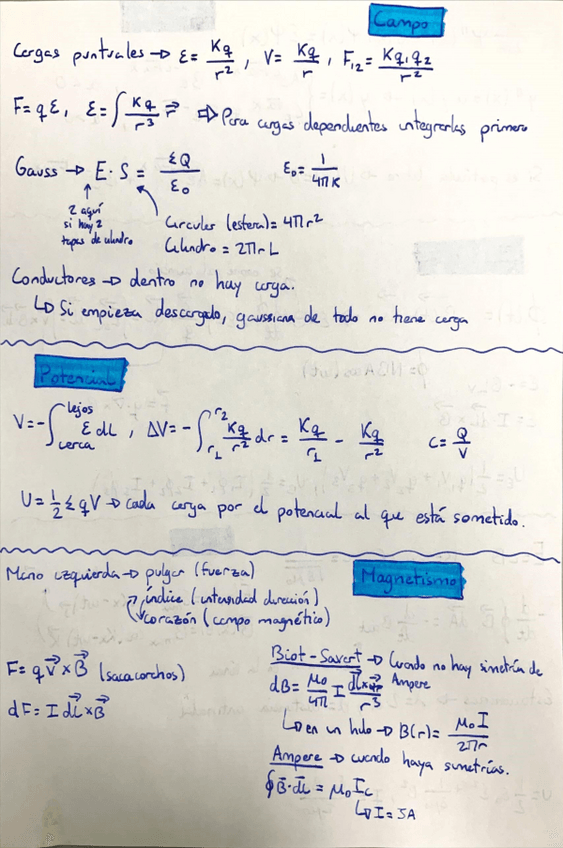 Campo
Cargas puntuales → ε = Kq/r², V = Kq/r, F₁₂ = Kq₁q₂/r²
F = qε, ε = ∫ Kq/r³ r⃗ ⇒ Para cargas dependientes integrarlas primero
Gauss → E · S = ΣQ/ε₀ ε₀ = 1/4πK
2 aquí
si hay 2
tapas de cilindro
Circular (esfera) = 4πr²
Cilindro = 2πrL
Conductores → dentro no hay carga.
↳ Si empieza descargado, gaussiana de todo no tiene carga
Potencial
V = -∫ lejos cerca ε dL, ΔV = -∫ r₂ r₁ Kq/r² dr = Kq/r₁ - Kq/r² C = Q/V
U = ½ Σ qV → cada carga por el potencial al que está sometido.
Magnetismo
Mano izquierda → pulgar (fuerza)
↗ índice (intensidad dirección)
↘ corazón (campo magnético)
F = q v⃗ × B⃗ (sacacorchos)
dF = I dL⃗ × B⃗
Biot-Savart → Cuando no hay simetría de
Ampere
dB = μ₀/4π I dL⃗ × r⃗/r³
↳ en un hilo → B(r) = μ₀I/2πr
Ampere → cuando haya simetrías.
∮ B⃗ · dL⃗ = μ₀ I꜀
↳ I = JA